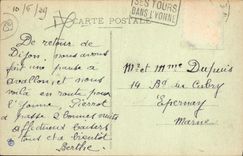 10/6/29
CARTE POSTALE
SES TOURS
DANS L'YONNE
De retour de
Dijon, nous avons
fait une pause a
avallon, et nous
voila en route pour
l'yonne, Pierrot
a passe 2 bonnes nuits
affectueux baisers
tous et a bientôt
Berthe.
Mr et Mme Dupuis
14 Bd
Epernay
Marne